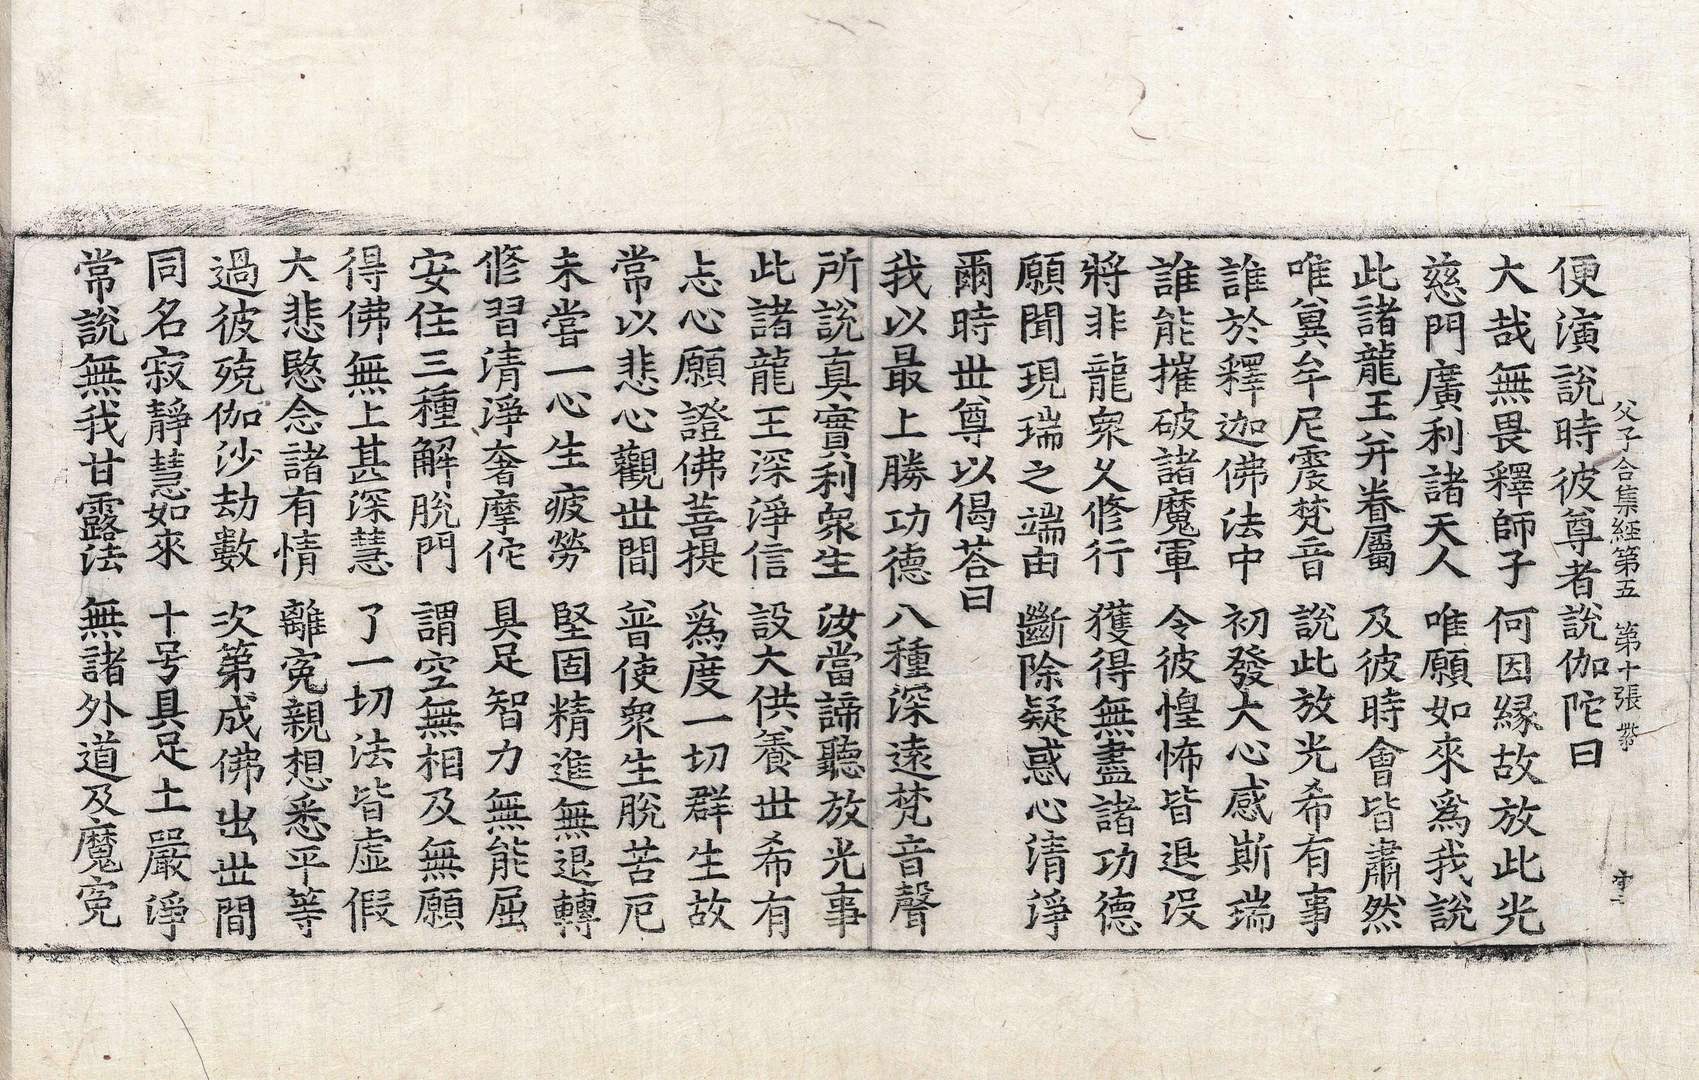 父子合集經第五　第十張　紫
便演說時彼尊者說伽陀曰
大哉無畏釋師子　何因緣故放此光
慈門廣利諸天人　唯願如來爲我說
此諸龍王并眷屬　及彼時會皆肅然
唯冀牟尼震梵音　說此放光希有事
誰於釋迦佛法中　初發大心感斯瑞
誰能摧破諸魔軍　令彼惶怖皆退沒
將非龍衆久修行　獲得無盡諸功德
願聞現瑞之端由　斷除疑惑心清淨
爾時世尊以偈荅曰
我以最上勝功德　八種深遠梵音聲
所說真實利衆生　汝當諦聽放光事
此諸龍王深淨信　設大供養世希有
志心願證佛菩提　爲度一切群生故
常以悲心觀世間　普使衆生脫苦厄
未嘗一心生疲勞　堅固精進無退轉
修習清淨奢摩佗　具足智力無能屈
安住三種解脫門　謂空無相及無願
得佛無上甚深慧　了一切法皆虛假
大悲愍念諸有情　離寃親想悉平等
過彼殑伽沙劫數　次第成佛出世間
同名寂靜慧如來　十号具足土嚴淨
常說無我甘露法　無諸外道及魔寃